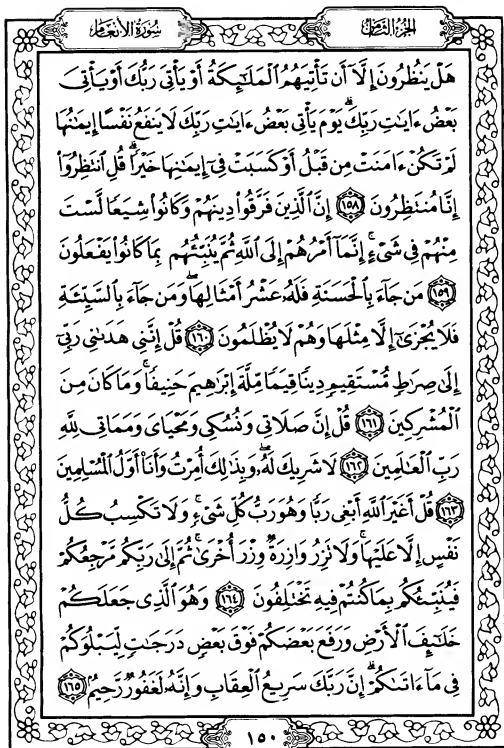 سُورَةُ الأَنْعَامِ
الجُزْءُ الثَّامِنُ
هَلْ يَنظُرُونَ إِلَّآ أَن تَأْتِيَهُمُ ٱلْمَلَٰٓئِكَةُ أَوْ يَأْتِىَ رَبُّكَ أَوْ يَأْتِىَ
بَعْضُ ءَايَٰتِ رَبِّكَ ۗ يَوْمَ يَأْتِى بَعْضُ ءَايَٰتِ رَبِّكَ لَا يَنفَعُ نَفْسًا إِيمَٰنُهَا
لَمْ تَكُنْ ءَامَنَتْ مِن قَبْلُ أَوْ كَسَبَتْ فِىٓ إِيمَٰنِهَا خَيْرًا ۗ قُلِ ٱنتَظِرُوٓا۟
إِنَّا مُنتَظِرُونَ ١٥٨ إِنَّ ٱلَّذِينَ فَرَّقُوا۟ دِينَهُمْ وَكَانُوا۟ شِيَعًا لَّسْتَ
مِنْهُمْ فِى شَىْءٍ ۚ إِنَّمَآ أَمْرُهُمْ إِلَى ٱللَّهِ ثُمَّ يُنَبِّئُهُم بِمَا كَانُوا۟ يَفْعَلُونَ
١٥٩ مَن جَآءَ بِٱلْحَسَنَةِ فَلَهُۥ عَشْرُ أَمْثَالِهَا ۖ وَمَن جَآءَ بِٱلسَّيِّئَةِ
فَلَا يُجْزَىٰٓ إِلَّا مِثْلَهَا وَهُمْ لَا يُظْلَمُونَ ١٦٠ قُلْ إِنَّنِى هَدَىٰنِى رَبِّىٓ
إِلَىٰ صِرَٰطٍ مُّسْتَقِيمٍ دِينًا قِيَمًا مِّلَّةَ إِبْرَٰهِيمَ حَنِيفًا ۚ وَمَا كَانَ مِنَ
ٱلْمُشْرِكِينَ ١٦١ قُلْ إِنَّ صَلَاتِى وَنُسُكِى وَمَحْيَاىَ وَمَمَاتِى لِلَّهِ
رَبِّ ٱلْعَٰلَمِينَ ١٦٢ لَا شَرِيكَ لَهُۥ ۖ وَبِذَٰلِكَ أُمِرْتُ وَأَنَا۠ أَوَّلُ ٱلْمُسْلِمِينَ
١٦٣ قُلْ أَغَيْرَ ٱللَّهِ أَبْغِى رَبًّا وَهُوَ رَبُّ كُلِّ شَىْءٍ ۚ وَلَا تَكْسِبُ كُلُّ
نَفْسٍ إِلَّا عَلَيْهَا ۚ وَلَا تَزِرُ وَازِرَةٌ وِزْرَ أُخْرَىٰ ۚ ثُمَّ إِلَىٰ رَبِّكُم مَّرْجِعُكُمْ
فَيُنَبِّئُكُم بِمَا كُنتُمْ فِيهِ تَخْتَلِفُونَ ١٦٤ وَهُوَ ٱلَّذِى جَعَلَكُمْ
خَلَٰٓئِفَ ٱلْأَرْضِ وَرَفَعَ بَعْضَكُمْ فَوْقَ بَعْضٍ دَرَجَٰتٍ لِّيَبْلُوَكُمْ
فِى مَآ ءَاتَىٰكُمْ ۗ إِنَّ رَبَّكَ سَرِيعُ ٱلْعِقَابِ وَإِنَّهُۥ لَغَفُورٌ رَّحِيمٌۢ ١٦٥
١٥٠